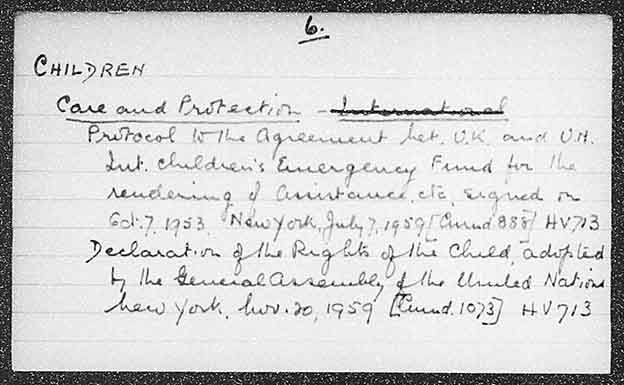 6.
CHILDREN
Care and Protection - International
Protocol to the Agreement bet. U.K. and U.N.
Int. Children's Emergency Fund for the
rendering of assistance, etc, signed on
Oct. 7, 1953. New York, July 7, 1959 [Cmnd 888] HV713
Declaration of the Rights of the Child, adopted
by the General Assembly of the United Nations
New York, Nov. 20, 1959 [Cmnd. 1073] HV713